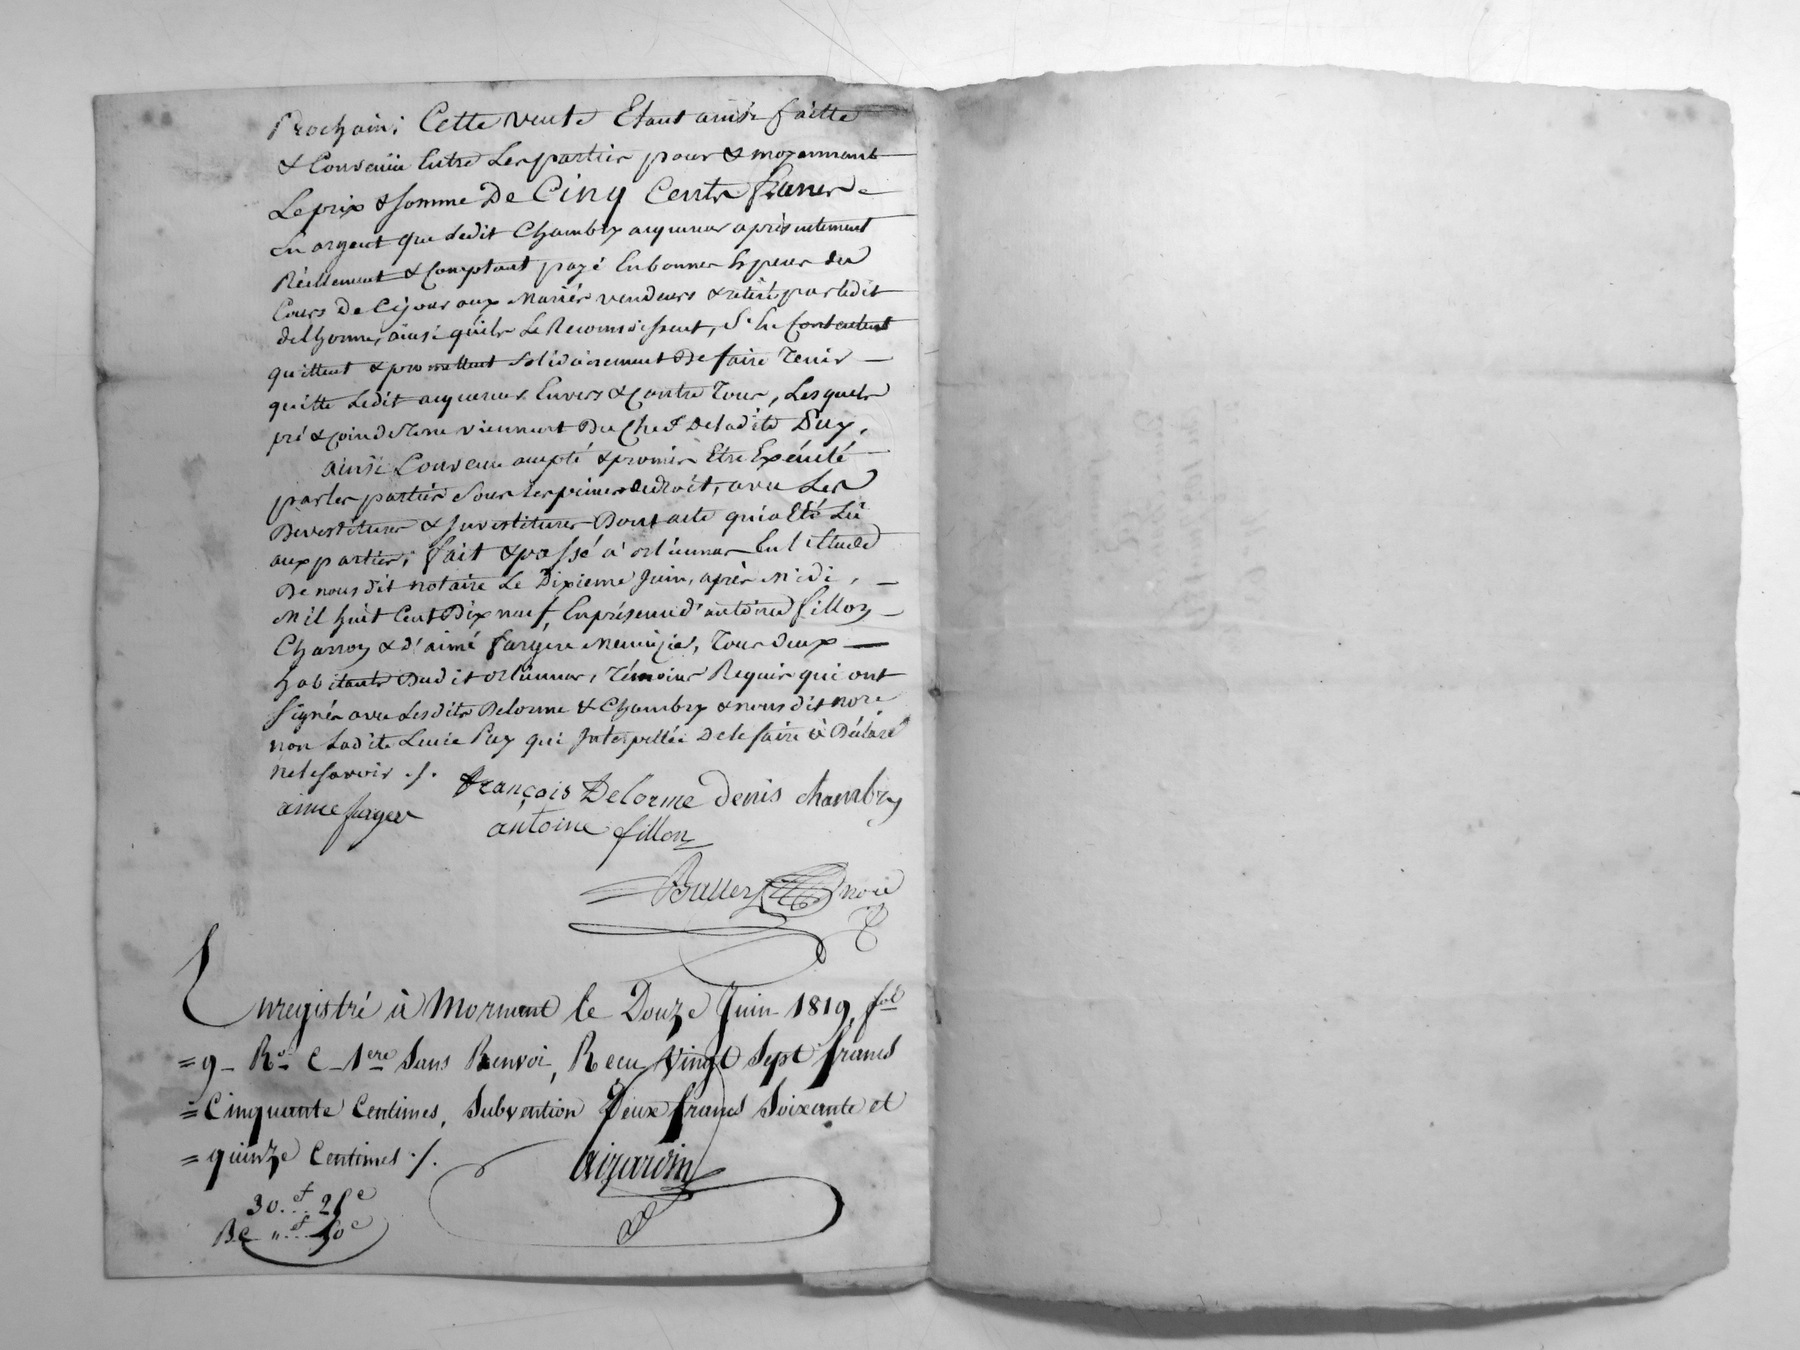 Prochain; Cette vente Etant ainsi faitte
& Convenüe Entre Les parties pour & moyennant
Le prix & somme De Cinq Cents francs
En argent que ledit Chambry acquereur a présentement
Réellement & Comptant payé En bonnes Espèces du
Cours De Ce jour aux Mariés vendeurs & retiré par ledit
delhorme, ainsi qu'ils Le Reconnoissent, S'En Contentent
quittent & promettent solidairement De faire Tenir
quitte Ledit acquereur Envers & Contre Tous, Lesquels
pré & coin de Terre viennent Du Chef De ladite Puy.
ainsi Convenu accepté & promis Etre Exécuté
par les parties Sous les peines de droit, avec Les
Devestitures & Investitures Dont acte qui a Eté Lû
aux parties; fait & passé à orliennas En l'Etude
De nous dit notaire Le Dixieme Juin, après Midi,
Mil huit Cent Dix neuf, En présence d'antoine fillon
Charron & d'aimé fargère Menuizié, Tous Deux
habitants Dudit orliennas, Témoins Requis qui ont
signés avec Lesdits Delorme & Chambry & nous dit nore
non Ladite Lucie Puy qui Interpellée De le faire à Déclaré
ne le savoir ./.
françois Delorme denis chambry
aime farger
antoine fillon
nore
Enregistré à Mornant le Douze Juin 1819, fol
= 9 _ Ro. C _ 1ere Sans Renvoi, Recu Vingt Sept francs
= Cinquante Centimes, Subvention Deux francs Soixante et
= quinze Centimes ./.
30.f..25c
"..f..50c